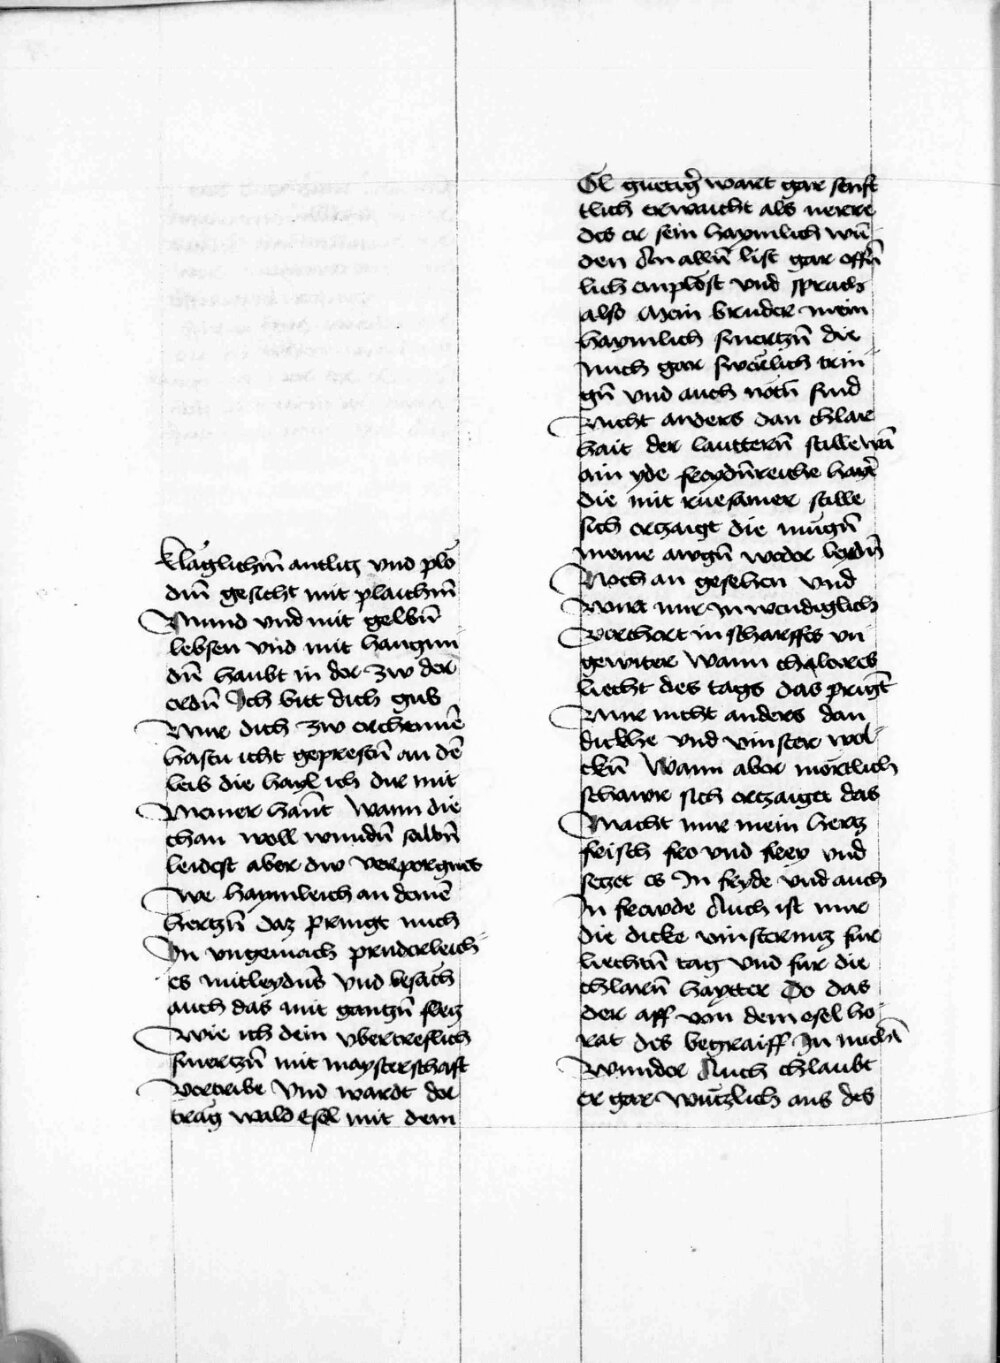 klåglichm̄ antlitz vnd plo
dm̄ gesicht mit plaichm̄
Mund vnd mit gelbn̄
lebsen vnd mit hangun
dn̄ haubt in der zw der
erdn̄ Ich bitt dich gib
Mir dich zw erchennē
hastu icht geprestn̄ an dē
leib die hayl ich dir mit
Meiner hañt Wann die
chan woll wundn̄ salbn̄
leidest aber dw verporgnes
we haymleich an deinē
hertzn̄ daz pringt mich
In vngemach pruderleich
es mitleydn̄s Vnd besåch
auch das mit gantzn̄ fleiz
Wie ich dein vbertreflich
smertzn̄ mit maysterschaft
Vertribe Vnd wardt der
träg wald esel mit dem
El guetig̃ wart gar senft
tlich erwaicht als verre
des er sein haymlich wū
den An allūn list gar offn̄
lich enplöst vnd sprach
also Mein bruder mein
haymlich smertzn̄ die
mich gar swërlich trin
gn̄ vnd auch nötn̄ sind
Nicht anders dan chlar
hait der lauttern̄ stille wān
ain yde froydn̄reiche hayt̃
die mit ruesamer stille
sich ertzaigt die mügn̄
meine awgn̄ weder leydn̄
Noch an gesehen vnd
Wirt mir Inwendiglich
Verchert in scharffes vn
gewiter Wann chalores
liecht des tags das pringt
Mir nicht anders dan
dickhe vnd vinster wol
ckn̄ Wann aber mörtlich
schawr sich ertzaiget das
Macht mir mein hertz
frisch fro vnd frey vnd
setzet es In fryde vnd auch
In frewde Auch ist mir
die dicke vinsternuz fur
liechtn̄ tag vnd fur die
chlarn̄ haytter Do das
der aff von dem esel ho
rat des begraiff In michl̄
wunder Auch chlaubt
er gar witzlich aus des